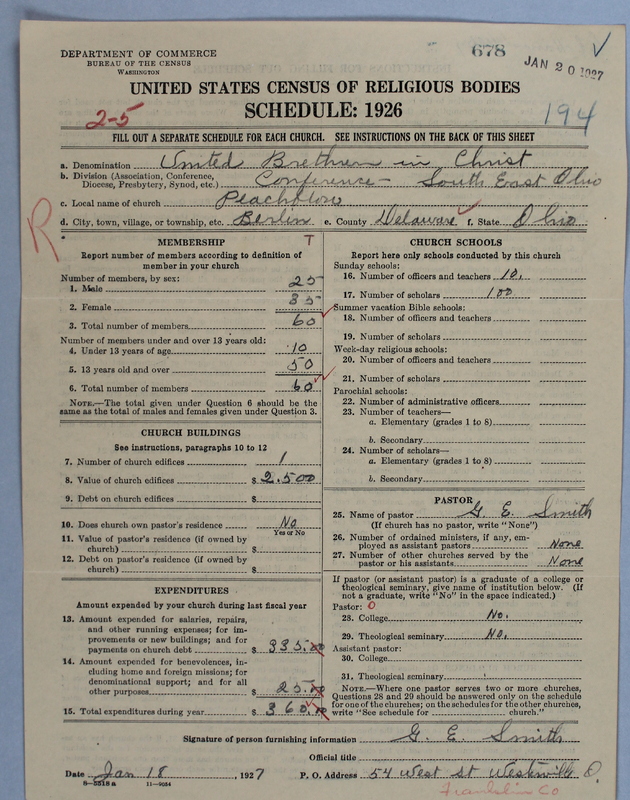 DEPARTMENT OF COMMERCE
BUREAU OF THE CENSUS
WASHINGTON
678
JAN 20 1927
UNITED STATES CENSUS OF RELIGIOUS BODIES
SCHEDULE: 1926
2-5
194
FILL OUT A SEPARATE SCHEDULE FOR EACH CHURCH. SEE INSTRUCTIONS ON THE BACK OF THIS SHEET
a. Denomination United Brethren in Christ
b. Division (Association, Conference, Diocese, Presbytery, Synod, etc.) Conference - South East Ohio
c. Local name of church Peachblow
d. City, town, village, or township, etc. Berlin e. County Delaware f. State Ohio
R
MEMBERSHIP T
Report number of members according to definition of
member in your church
Number of members, by sex:
1. Male 25
2. Female 35
3. Total number of members 60
Number of members under and over 13 years old:
4. Under 13 years of age 10
5. 13 years old and over 50
6. Total number of members 60
NOTE.—The total given under Question 6 should be the
same as the total of males and females given under Question 3.
CHURCH BUILDINGS
See instructions, paragraphs 10 to 12
7. Number of church edifices 1
8. Value of church edifices $ 2.500
9. Debt on church edifices $
10. Does church own pastor's residence No
Yes or No
11. Value of pastor's residence (if owned by
church) $
12. Debt on pastor's residence (if owned by
church) $
EXPENDITURES
Amount expended by your church during last fiscal year
13. Amount expended for salaries, repairs,
and other running expenses; for im-
provements or new buildings; and for
payments on church debt $ 335.00
14. Amount expended for benevolences, in-
cluding home and foreign missions; for
denominational support; and for all
other purposes $ 25.00
15. Total expenditures during year $ 360.00
CHURCH SCHOOLS
Report here only schools conducted by this church
Sunday schools:
16. Number of officers and teachers 10.
17. Number of scholars 100
Summer vacation Bible schools:
18. Number of officers and teachers
19. Number of scholars
Week-day religious schools:
20. Number of officers and teachers
21. Number of scholars
Parochial schools:
22. Number of administrative officers
23. Number of teachers—
a. Elementary (grades 1 to 8)
b. Secondary
24. Number of scholars—
a. Elementary (grades 1 to 8)
b. Secondary
PASTOR
25. Name of pastor G. E. Smith
(If church has no pastor, write "None")
26. Number of ordained ministers, if any, em-
ployed as assistant pastors None
27. Number of other churches served by the
pastor or his assistants None
If pastor (or assistant pastor) is a graduate of a college or
theological seminary, give name of institution below. (If
not a graduate, write "No" in the space indicated.)
Pastor: 0
28. College No.
29. Theological seminary No.
Assistant pastor:
30. College
31. Theological seminary
NOTE.—Where one pastor serves two or more churches,
Questions 28 and 29 should be answered only on the schedule
for one of the churches; on the schedules for the other churches,
write "See schedule for church."
Signature of person furnishing information G. E. Smith
Official title
Date Jan 18, 1927 P. O. Address 54 West St Westerville O.
8—5518a 11—9034
Franklin Co